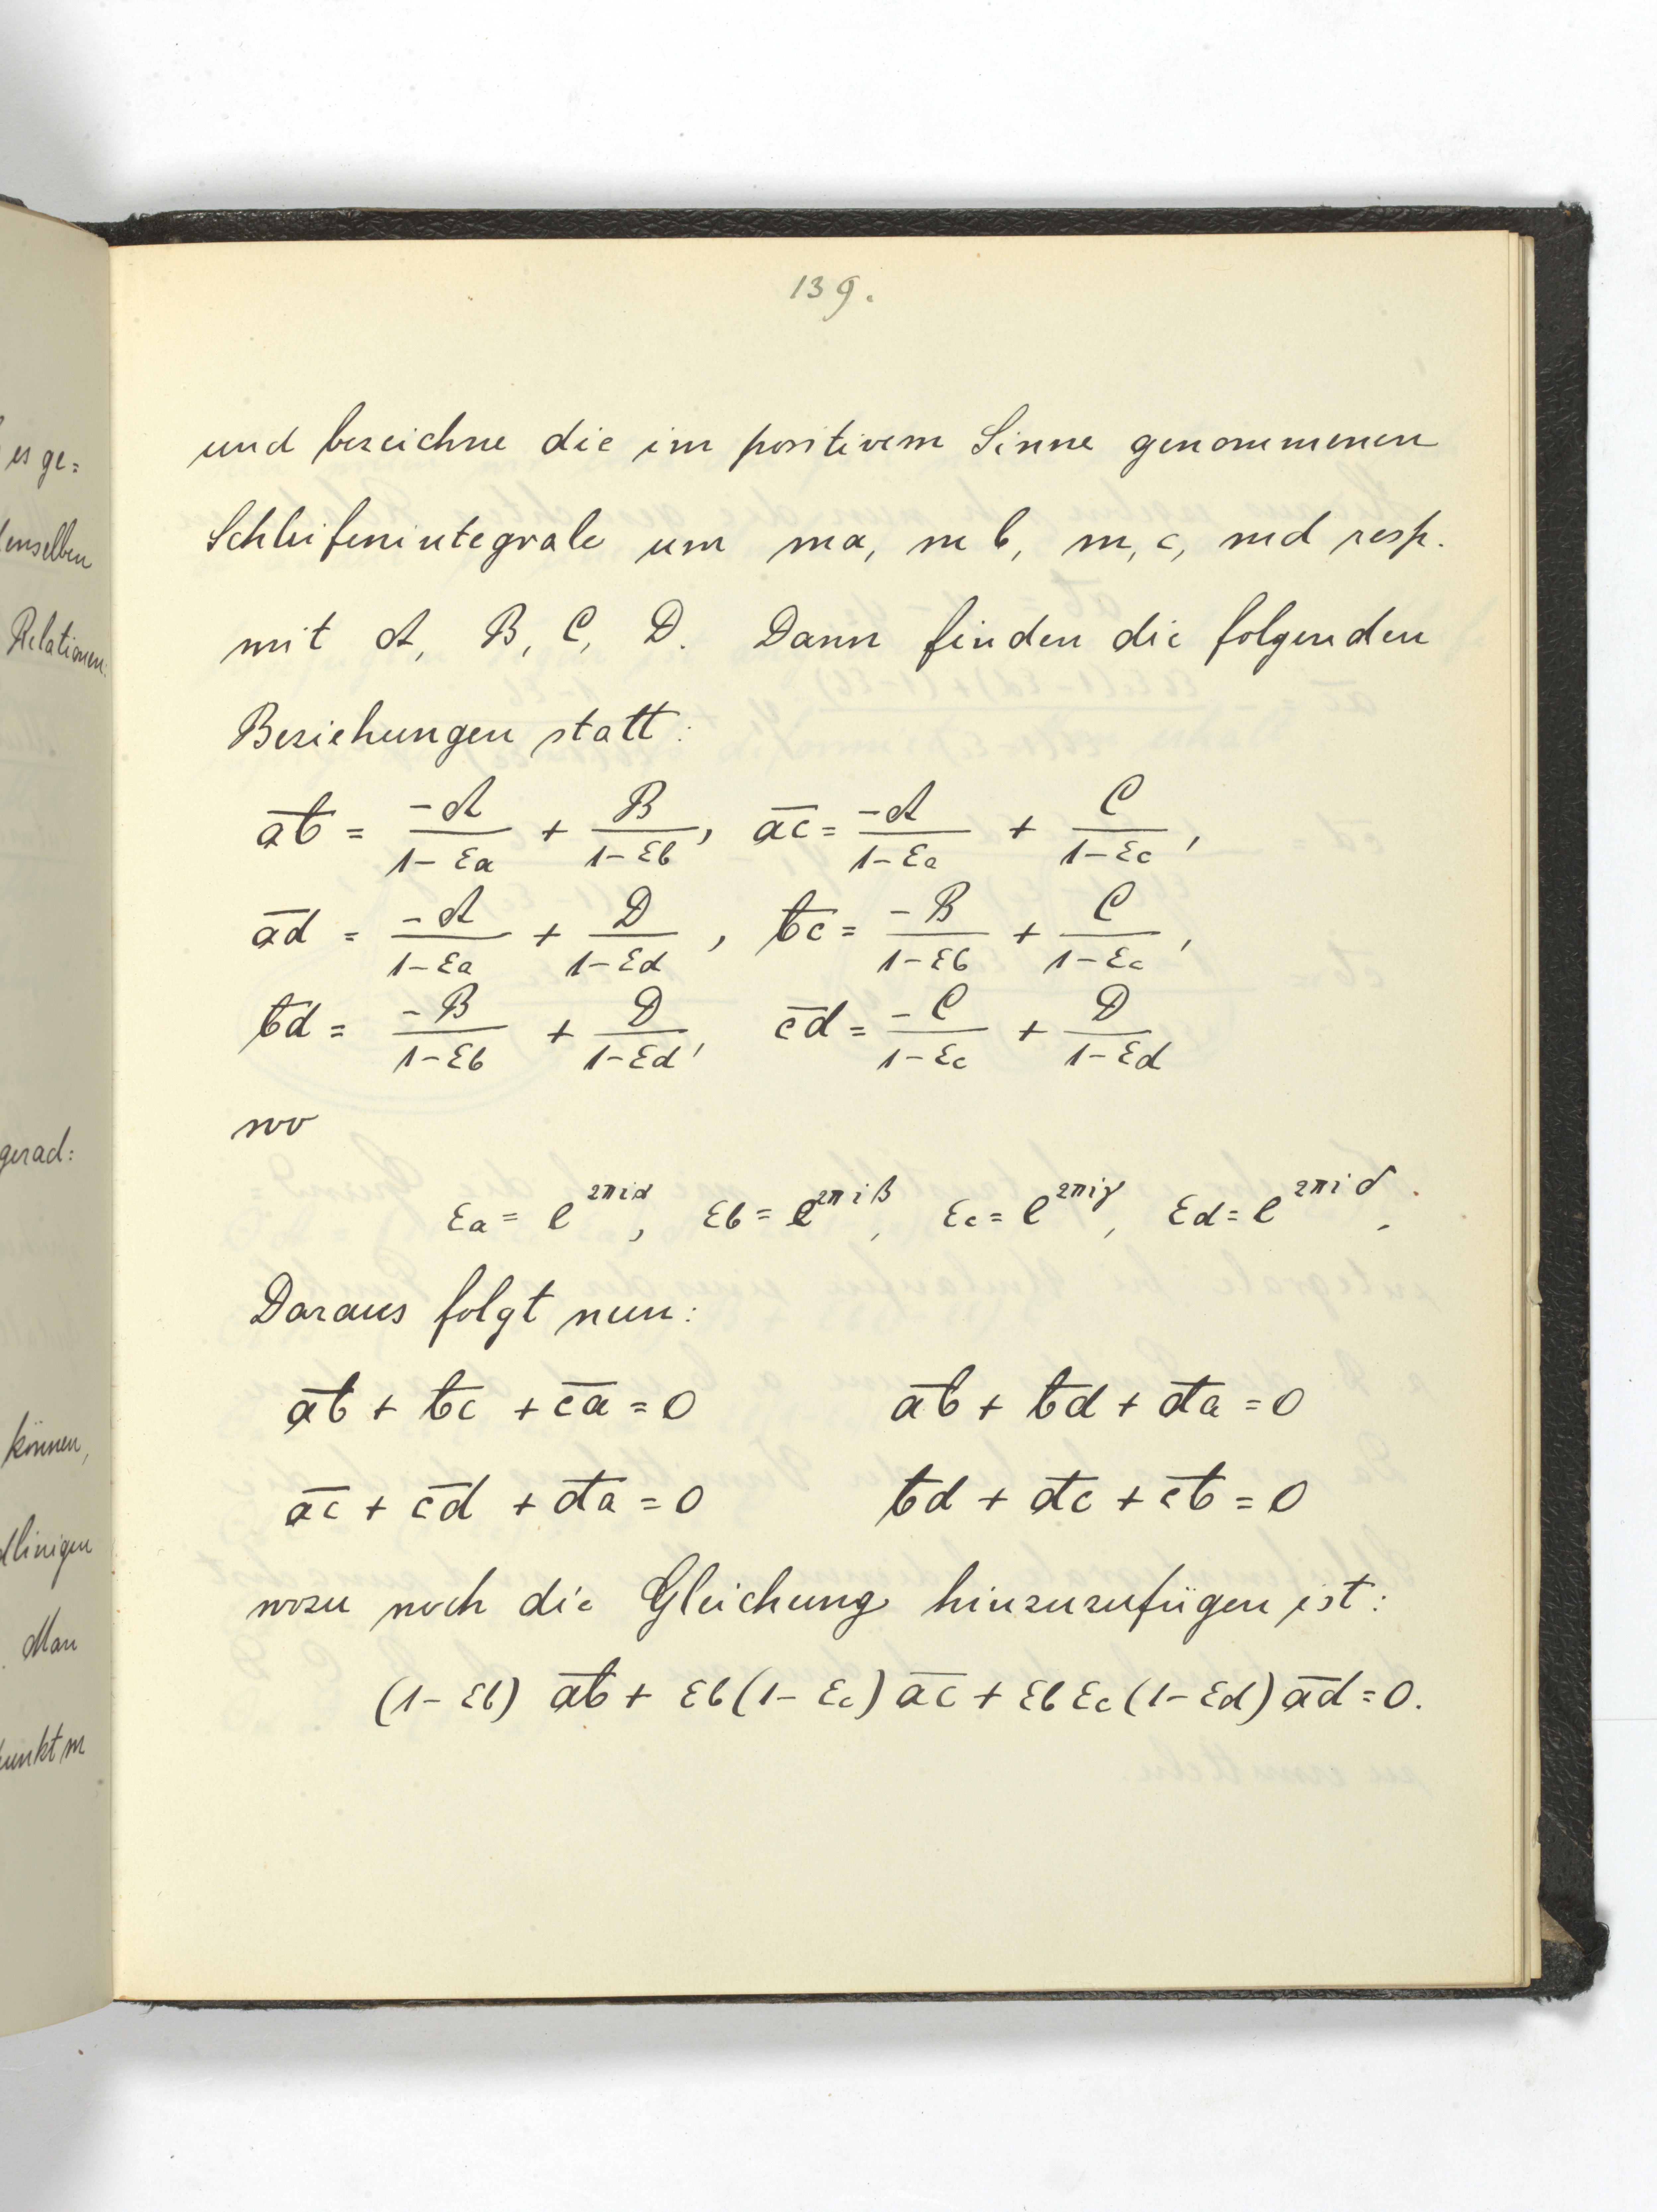 es ge=
denselben
Relationen:
gerad:
können,
dlinigen
Man
punkt m
139.
und bezeichne die im positivem Sinne genommenen
Schleifenintegrale um ma, mb, m,c, md resp.
mit A, B, C, D. Dann finden die folgenden
Beziehungen statt:
\overline{ab} = \frac{-A}{1-εa} + \frac{B}{1-εb}, \overline{ac} = \frac{-A}{1-εa} + \frac{C}{1-εc},
\overline{ad} = \frac{-A}{1-εa} + \frac{D}{1-εd}, \overline{bc} = \frac{-B}{1-εb} + \frac{C}{1-εc},
\overline{bd} = \frac{-B}{1-εb} + \frac{D}{1-εd}, \overline{cd} = \frac{-C}{1-εc} + \frac{D}{1-εd}
wo
εa = e^{2πiα}, εb = e^{2πiβ}, εc = e^{2πiγ}, εd = e^{2πiδ}.
Daraus folgt nun:
\overline{ab} + \overline{bc} + \overline{ca} = 0 \overline{ab} + \overline{bd} + \overline{da} = 0
\overline{ac} + \overline{cd} + \overline{da} = 0 \overline{bd} + \overline{dc} + \overline{cb} = 0
wozu noch die Gleichung hinzuzufügen ist:
(1-εb) \overline{ab} + εb(1-εc) \overline{ac} + εb εc (1-εd) \overline{ad} = 0.